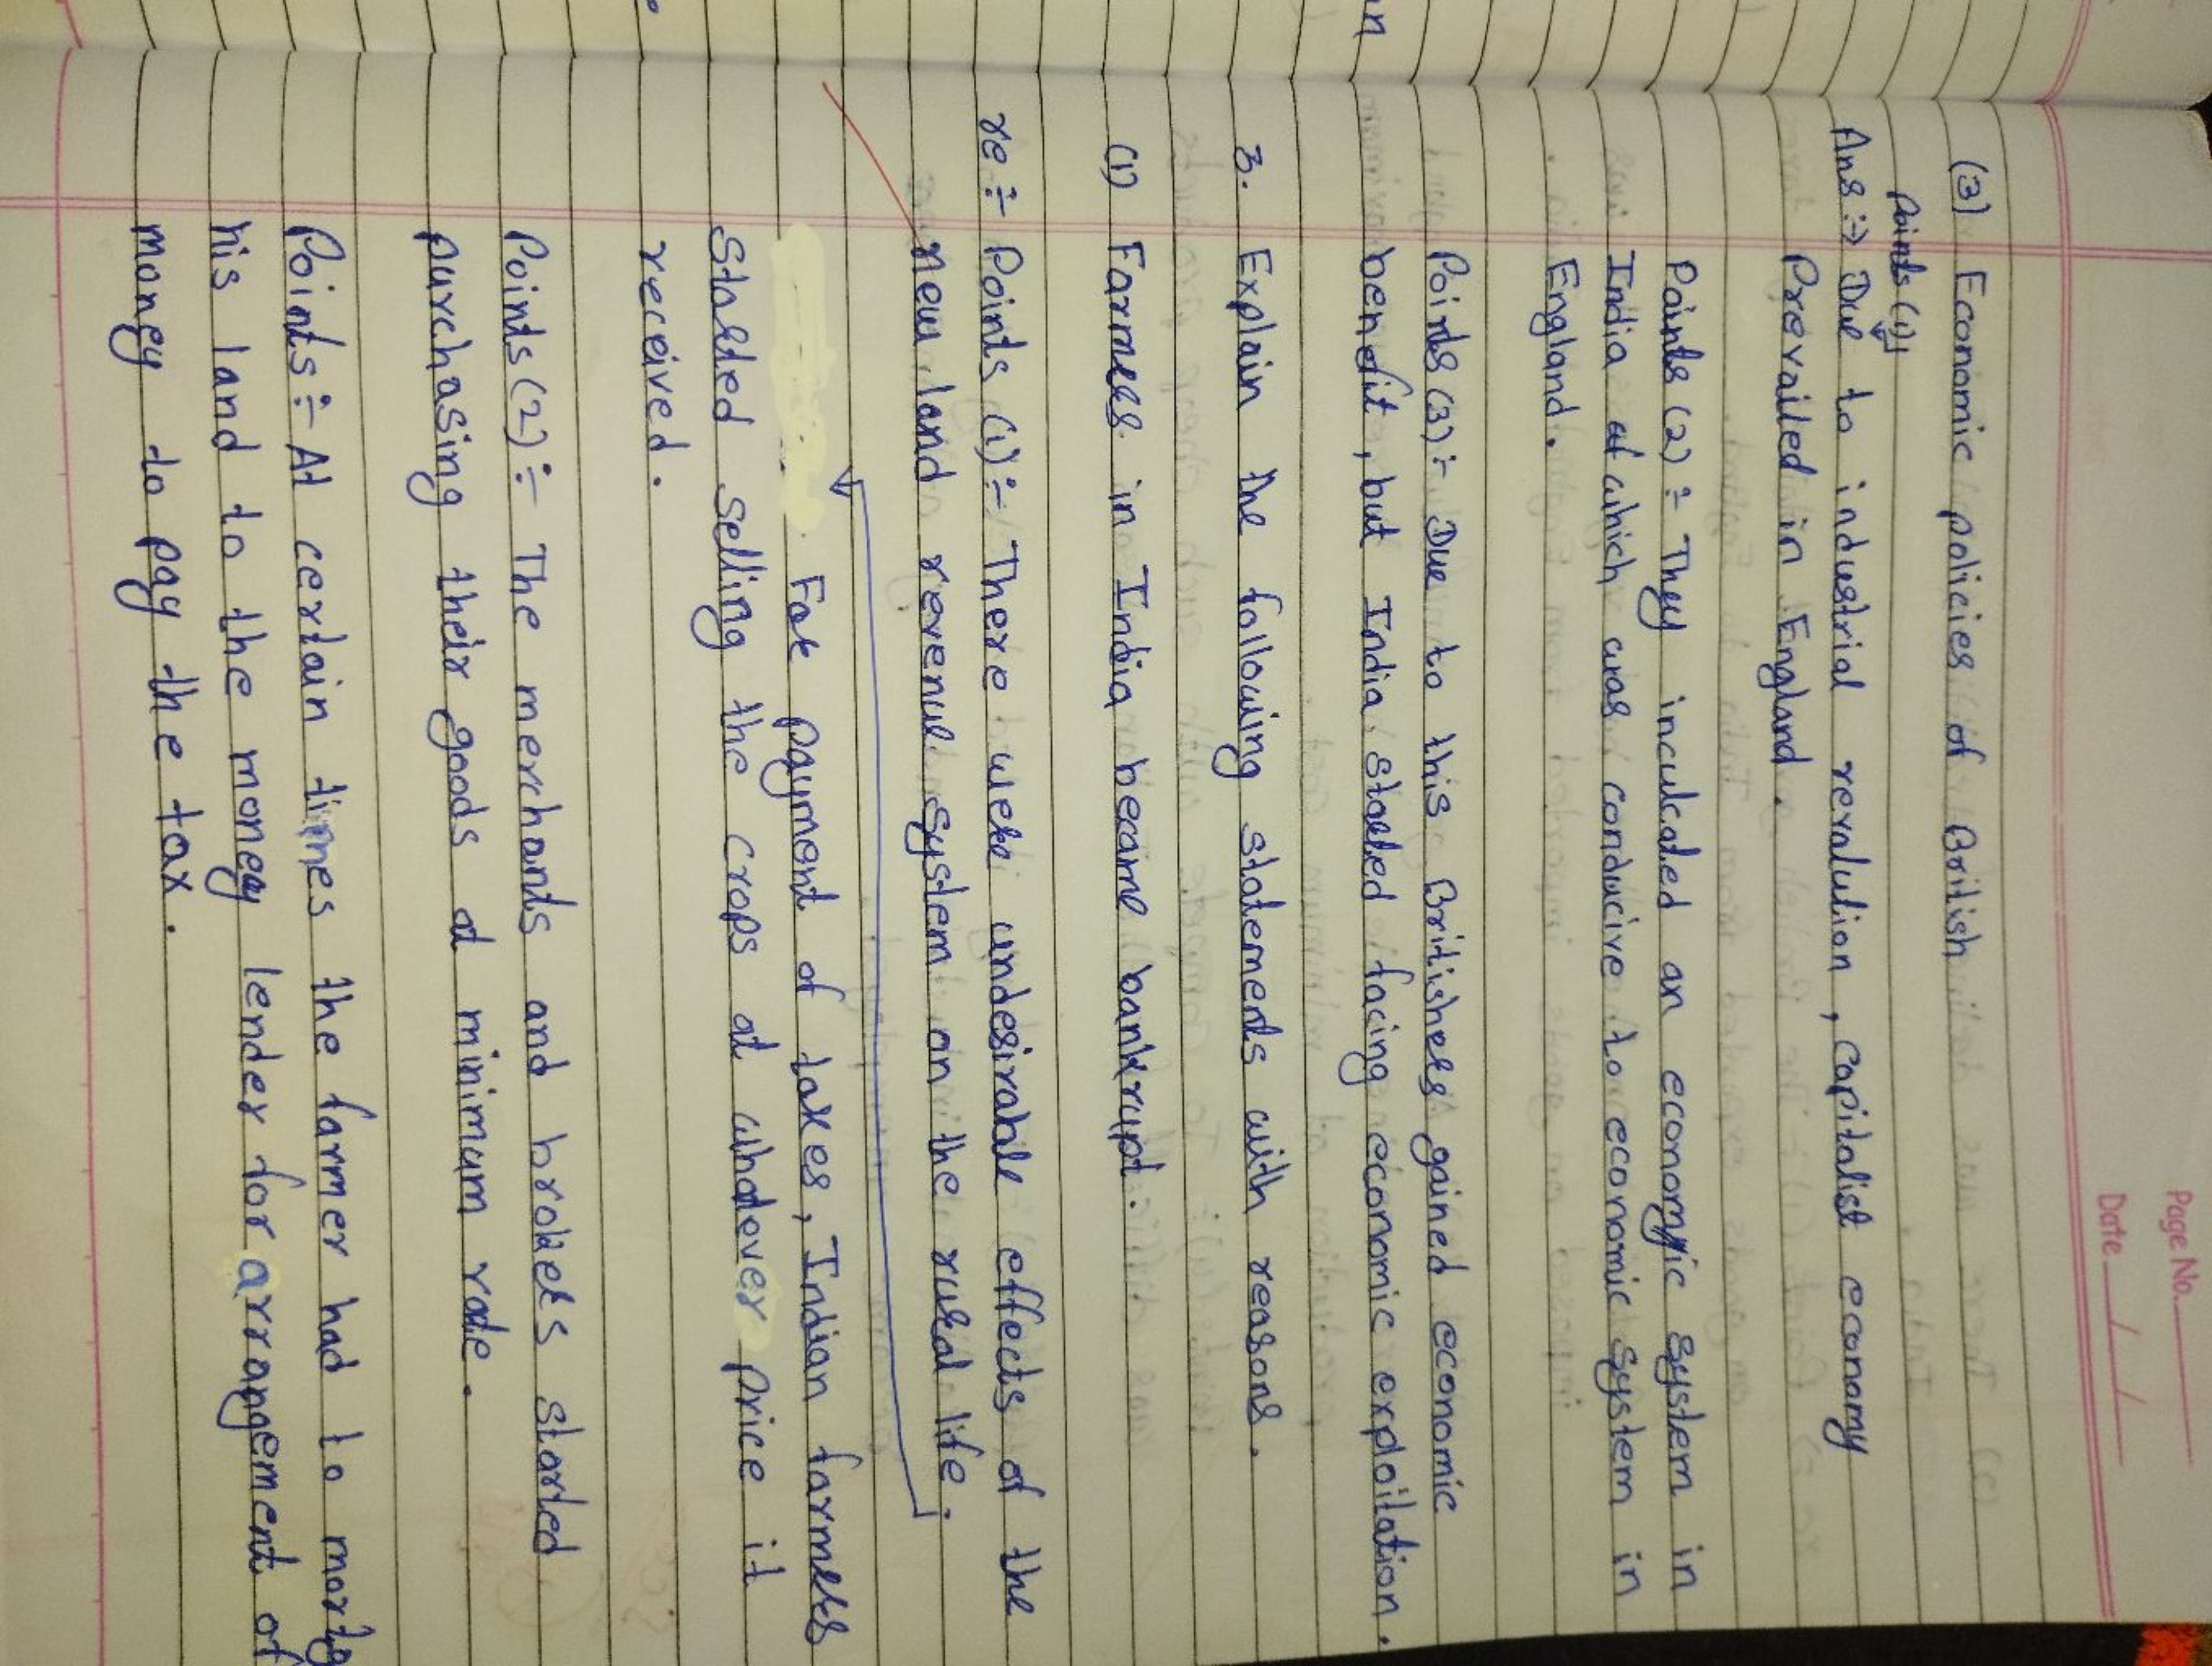 Page No.
Date / /
(3) Economic policies of British
Points (1)
Ans :→ Due to industrial revolution, capitalist economy
Prevailed in England.
Points (2) ÷ They inculcated an economic system in
India at which was conducive to economic system in
England.
Points (3) ÷ Due to this Britishers gained economic
benefit, but India started facing economic exploitation.
3. Explain the following statements with reasons.
(1) Farmers in India became bankrupt.
re ÷ Points (1) ÷ There were undesirable effects of the
new land revenue system on the rural life.
For payment of taxes, Indian farmers
started selling the crops at whatever price it
received.
Points (2) ÷ The merchants and brokers started
purchasing their goods at minimum rate.
Points ÷ At certain times the farmer had to mortg
his land to the money lender for arrangement of
money to pay the tax.